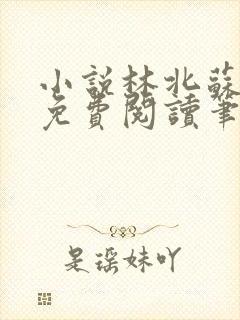 小說林北蘇
免費閱讀筆
是瑤妹吖